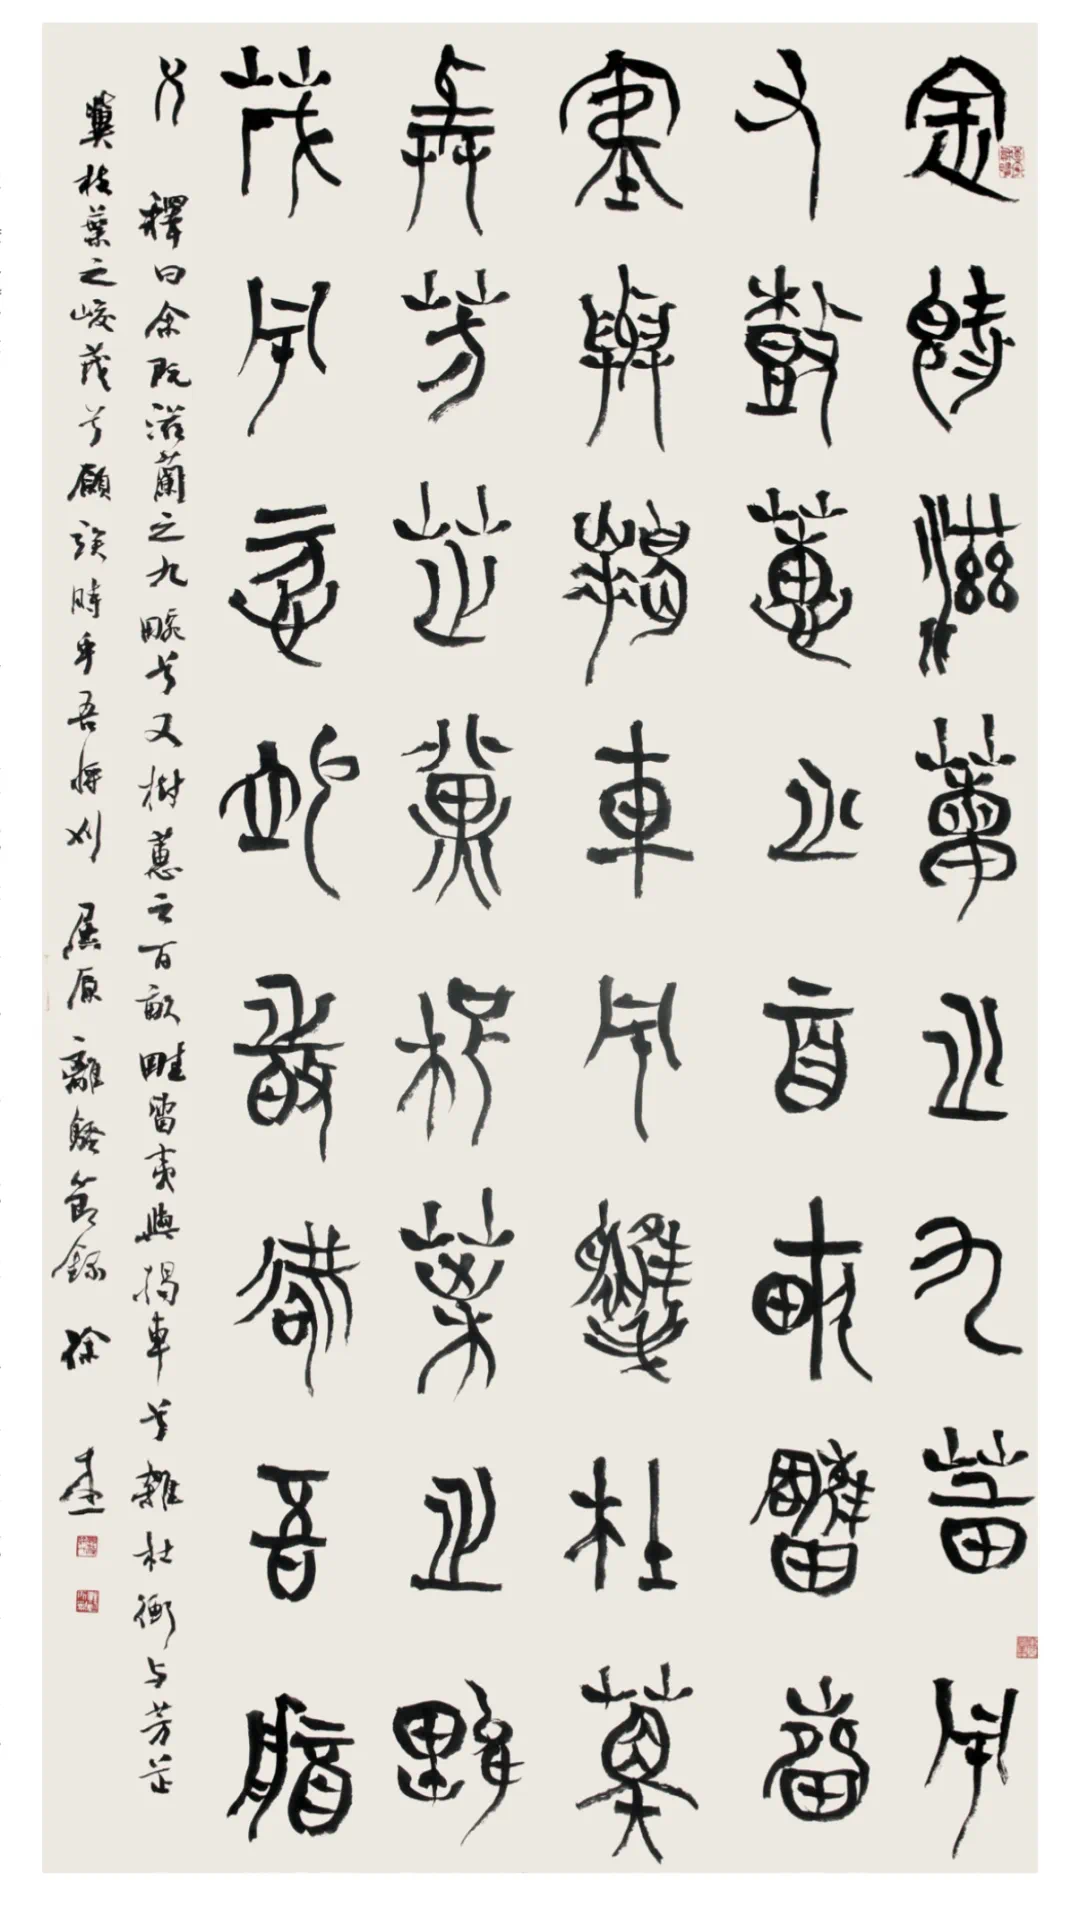 余既滋蘭之九畹兮
又樹蕙之百畝畦留
夷與揭車兮雜杜衡
與芳芷冀枝葉之峻
茂兮願竢時乎吾將
刈 釋曰余既滋蘭之九畹兮又樹蕙之百畝畦留夷與揭車兮雜杜衡与芳芷
冀枝葉之峻茂兮願竢時乎吾將刈 屈原離騷節録 徐